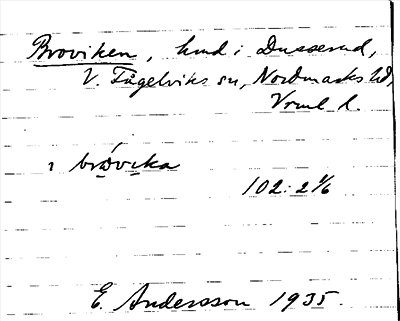 Broviken, hmd i Dusserud,
V. Fågelviks sn, Nordmarks hd,
Vrml l.
1 brovika
102: 2 1/6
E. Andersson 1935.